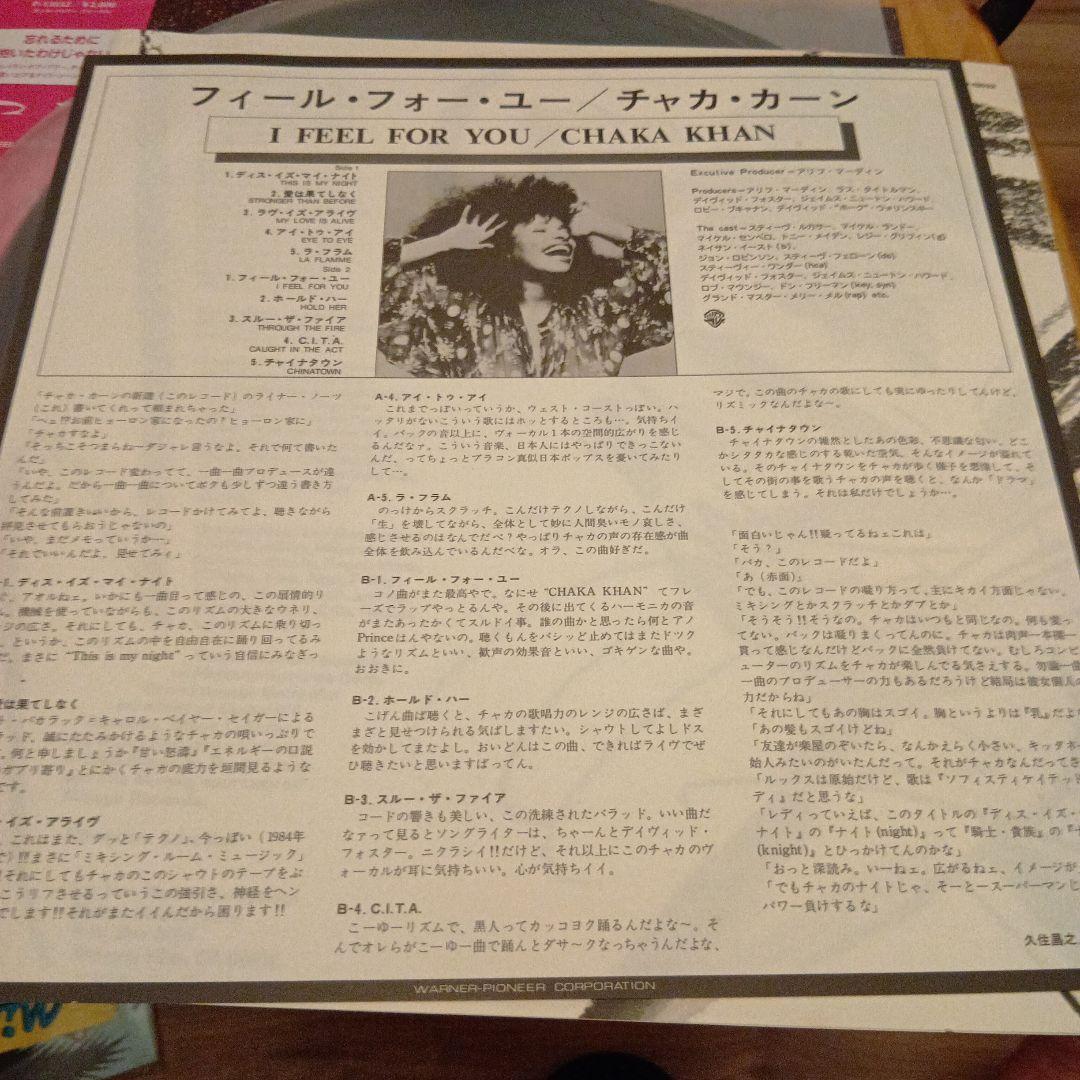 忘れるために
フィール・フォー・ユー／チャカ・カーン
I FEEL FOR YOU／CHAKA KHAN
Side 1
1.ディス・イズ・マイ・ナイト
THIS IS MY NIGHT
2.愛は果てしなく
STRONGER THAN BEFORE
3.ラヴ・イズ・アライヴ
MY LOVE IS ALIVE
4.アイ・トゥ・アイ
EYE TO EYE
5.ラ・フラム
LA FLAMME
Side 2
1.フィール・フォー・ユー
I FEEL FOR YOU
2.ホールド・ハー
HOLD HER
3.スルー・ザ・ファイア
THROUGH THE FIRE
4.C.I.T.A.
CAUGHT IN THE ACT
5.チャイナタウン
CHINATOWN
Excutive Producer＝アリフ・マーディン
Producers＝アリフ・マーディン、ラス・タイトルマン、
デイヴィッド・フォスター、ジェイムス・ニュートン・ハワード、
ロビー・ブキャナン、デイヴィッド・“ホーク”・ウォリンスキー
The cast＝スティーヴ・ルカサー、マイケル・ランドー、
マイケル・センベロ、トニー・メイデン、レジー・グリフィン(g)
ネイサン・イースト(b)、
ジョン・ロビンソン、スティーヴ・フェローン(ds)
スティーヴィー・ワンダー(hca)
デイヴィッド・フォスター、ジェイムス・ニュートン・ハワード、
ロブ・マウンジー、ドン・フリーマン(key,syn)
グランド・マスター・メリー・メル(rap) etc.
「チャカ・カーンの新譜（このレコード）のライナー・ノーツ
（これ）書いてくれって頼まれちゃった」
「へぇ!?お前ヒョーロン家になったの？ヒョーロン家に」
「チャカすなよ」
「そっちこそつまらねーダジャレ言うなよ、それで何て書いた
んだ」
「いや、このレコード変わってて、一曲一曲プロデュースが違
うんだよ。だから一曲一曲についてボクも少しずつ違う書き方
してみた」
「そんな前置きいいから、レコードかけてみてよ、聴きながら
拝見させてもらおうじゃないの」
「いや、まだメモっていうか…」
「それでいいんだよ、見せてみィ」
ディス・イズ・マイ・ナイト
、アオルねェ。いかにも一曲目って感じの、この扇情的リ
。機械を使っていながらも、このリズムの大きなウネリ、
ジの広さ。それにしても、チャカ、このリズムに乗り切っ
、というか、このリズムの中を自由自在に踊り回ってるみ
だ。まさに “This is my night” っていう自信にみなぎっ
愛は果てしなく
・バカラック＝キャロル・ベイヤー・セイガーによる
ラッド。誠にたたみかけるようなチャカの唄いっぷりで
。何と申しましょうか『甘い怒濤』『エネルギーの口説
ガブリ寄り』とにかくチャカの底力を垣間見るような
です。
・イズ・アライヴ
、これはまた、グッと「テクノ」、今っぽい（1984年
で）!!!まさに「ミキシング・ルーム・ミュージック」
!それにしてもチャカのこのシャウトのテープをぶ
こうリフさせるっていうこの強引さ、神経をヘン
でします!!それがまたイイんだから困ります!!
A-4. アイ・トゥ・アイ
これまでっぽいっていうか、ウェスト・コーストっぽい。ハ
ッタリがないこういう歌にはホッとするところも…。気持ちイ
イ。バックの音以上に、ヴォーカル1本の空間的広がりを感じ
るんだなァ。こういう音楽、日本人にはやっぱりできっこない
んだ、ってちょっとブラコン真似日本ポップスを憂いてみたり
して…。
A-5. ラ・フラム
のっけからスクラッチ。こんだけテクノしながら、こんだけ
「生」を壊してながら、全体として妙に人間臭いモノ哀しさ、
感じさせるのはなんでだべ？やっぱりチャカの声の存在感が曲
全体を飲み込んでいるんだべな。オラ、この曲好ぎだ。
B-1. フィール・フォー・ユー
コノ曲がまた最高やで。なにせ “CHAKA KHAN” てフレ
ーズでラップやっとるんや。その後に出てくるハーモニカの音
がまたあったかくてスルドイ事。誰の曲かと思ったら何とアノ
Princeはんやないの。聴くもんをバシッど止めてはまたドツク
ようなリズムといい、歓声の効果音といい、ゴキゲンな曲や。
おおきに。
B-2. ホールド・ハー
こげん曲ば聴くと、チャカの歌唱力のレンジの広さば、まざ
まざと見せつけられる気ばしますたい。シャウトしてよしドス
を効かしてまたよし。おいどんはこの曲、できればライヴでぜ
ひ聴きたいと思いますばってん。
B-3. スルー・ザ・ファイア
コードの響きも美しい、この洗練されたバラッド。いい曲だ
なァって見るとソングライターは、ちゃーんとデイヴィッド・
フォスター。ニクラシイ!!だけど、それ以上にこのチャカのヴ
ォーカルが耳に気持ちいい。心が気持ちイイ。
B-4. C.I.T.A.
こーゆーリズムで、黒人ってカッコヨク踊るんだよな〜。そ
んでオレらがこーゆー曲で踊んとダサ〜クなっちゃうんだよな、
マジで。この曲のチャカの歌にしても実にゆったりしてんけど、
リズミックなんだよな〜。
B-5. チャイナタウン
チャイナタウンの雑然としたあの色彩、不思議な匂い、どこ
かシタタカな感じのする乾いた空気、そんなイメージが溢れて
いる。そのチャイナタウンをチャカが歩く様子を想像して、そ
してその街の事を歌うチャカの声を聴くと、なんか「ドラマ」
を感じてしまう。それは私だけでしょうか…。
「面白いじゃん!!疑ってるねェこれは」
「そう？」
「バカ、このレコードだよ」
「あ（赤面）」
「でも、このレコードの唸り方って、主にキカイ方面じゃない。
ミキシングとかスクラッチとかダブとか」
「そうそう!!そうなの。チャカはいつもと同じなの。何も変っ
てない。バックは唸りまくってんのに。チャカは肉声一本槍一
貫って感じなんだけどバックに全然負けてない。むしろコンピ
ューターのリズムをチャカが楽しんでる気さえする。勿論一曲
一曲のプロデューサーの力もあるだろうけど結局は彼女個人の
力だからね」
「それにしてもあの胸はスゴイ。胸というよりは『乳』だよな
「あの髪もスゴイけどね」
「友達が楽屋のぞいたら、なんかえらく小さい、キッタネー
始人みたいのがいたんだって。それがチャカなんだってさ
「ルックスは原始だけど、歌は『ソフィスティケイテッド
ディ』だと思うな」
「レディっていえば、このタイトルの『ディス・イズ・
ナイト』の『ナイト(night)』って『騎士・貴族』の『ナ
(knight)』とひっかけてんのかな」
「おっと深読み。いーねェ。広がるねェ、イメージが
「でもチャカのナイトじゃ、そーとースーパーマンじ
パワー負けするな」
久住昌之
WARNER-PIONEER CORPORATION